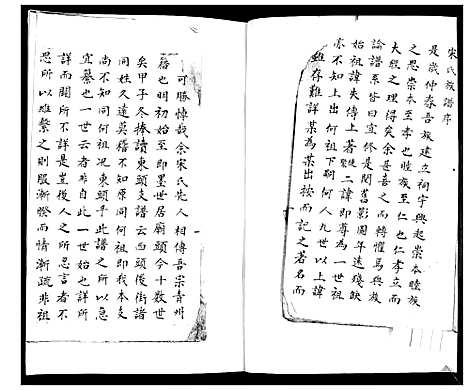 宋氏族譜序
是歲仲春吾族建立祠宇興起崇本睦族
之思崇本至孝也睦族至仁也仁孝立而
大殷之理得矣余甚喜之而轉懼焉與族
論譜系皆曰宜修是閱舊影圖年遠殘缺
始祖諱失傳上著徒聚二諱即尊為一世祖
亦不知上出何祖下嗣何人九世以上諱
雖存難詳某為某出按而記之著名而
可勝悼哉余宋氏先人相傳吾宗青州
籍也明初始至即墨世居廟頭今十數世
矣甲子冬捧讀東頭支譜云西頭後街諸
同姓久遠莫稽不知原同何祖即我本支
尚不知同何祖况東頭乎此譜之所以急
宜纂也一世云者非自此一世始也詳所
詳而闕所不詳是豈後人之所忍言者不
忍所以維繫之則服漸睽而情漸疏非祖